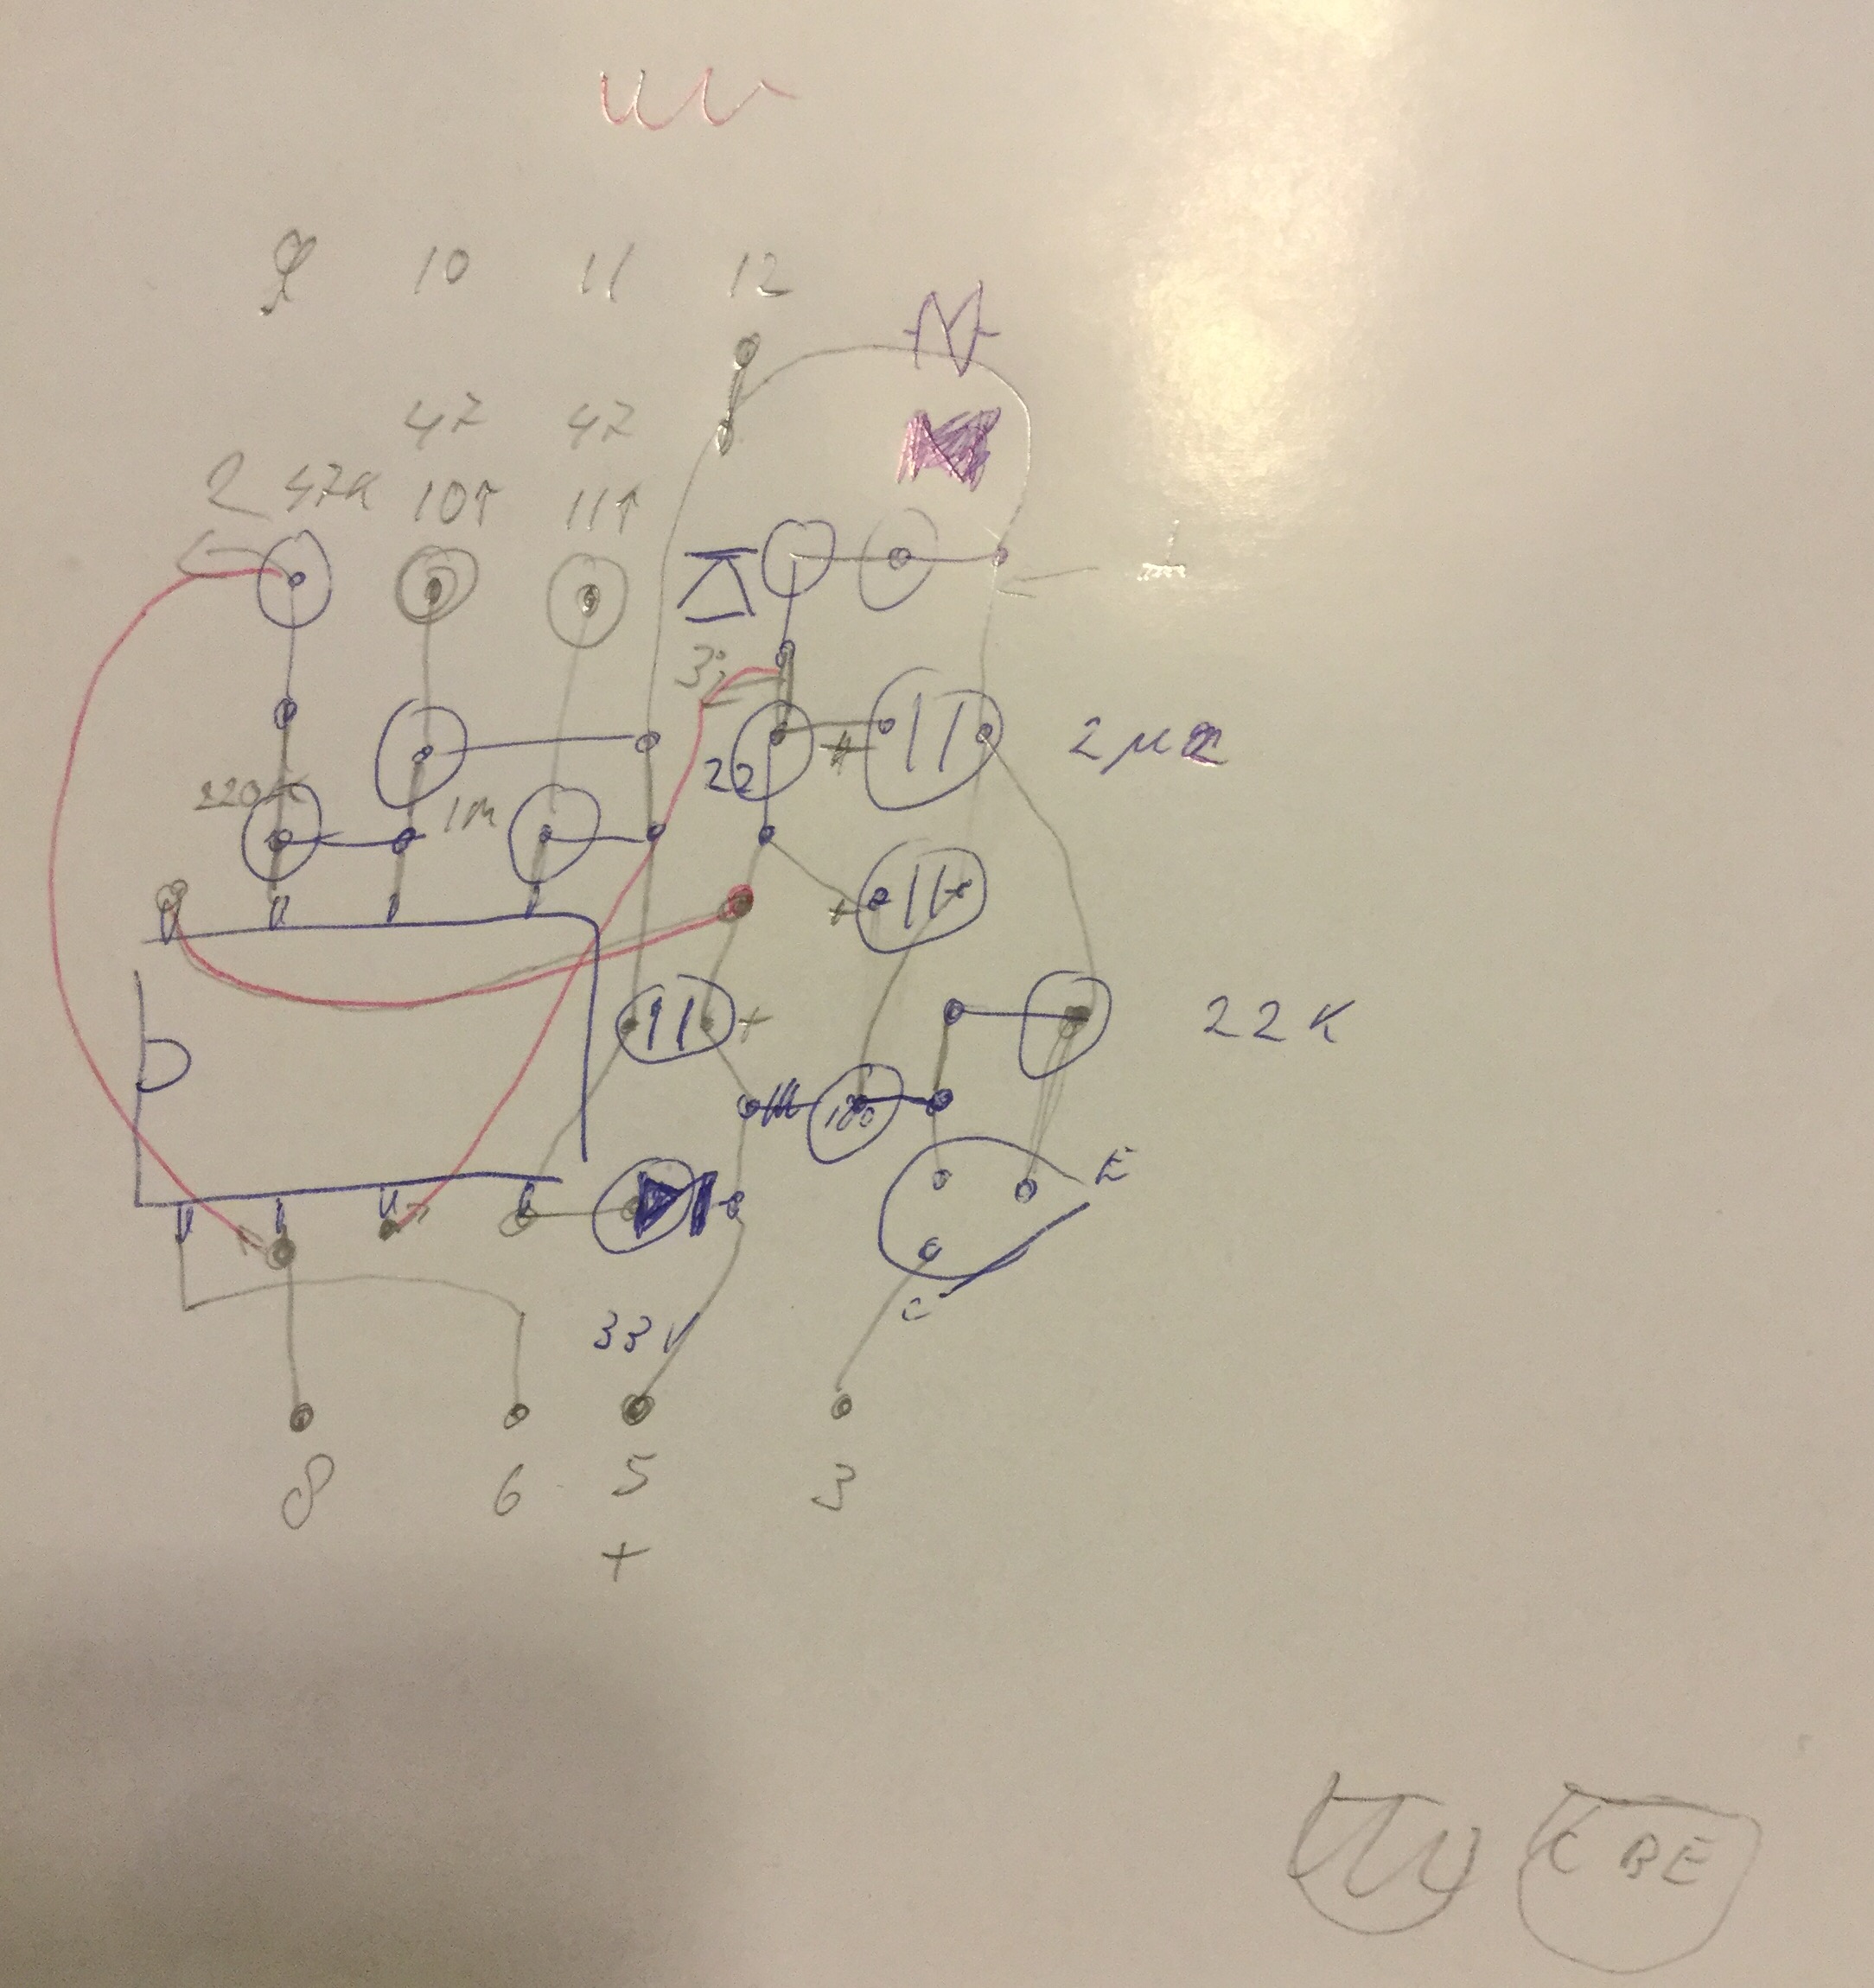 9 10 11 12
47 47
2 47K 10↑ 11↑
3
22 + 2μ
220K 1M
+
+ 22K
100
E
C
33V
8 6 5 3
+
C B E